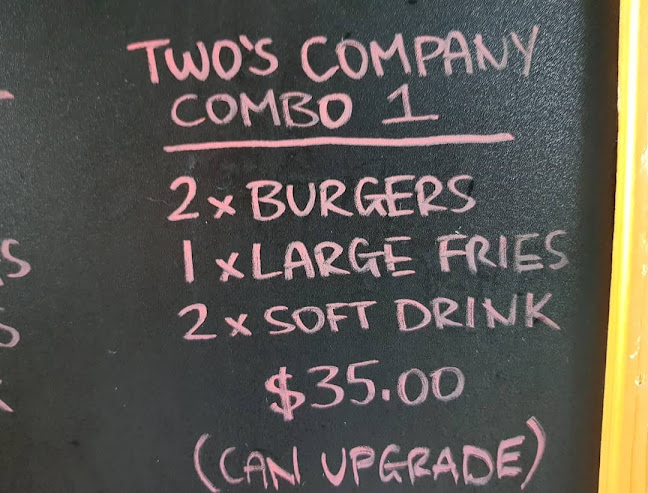 TWO'S COMPANY
COMBO 1
2 x BURGERS
1 x LARGE FRIES
2 x SOFT DRINK
$35.00
(CAN UPGRADE)